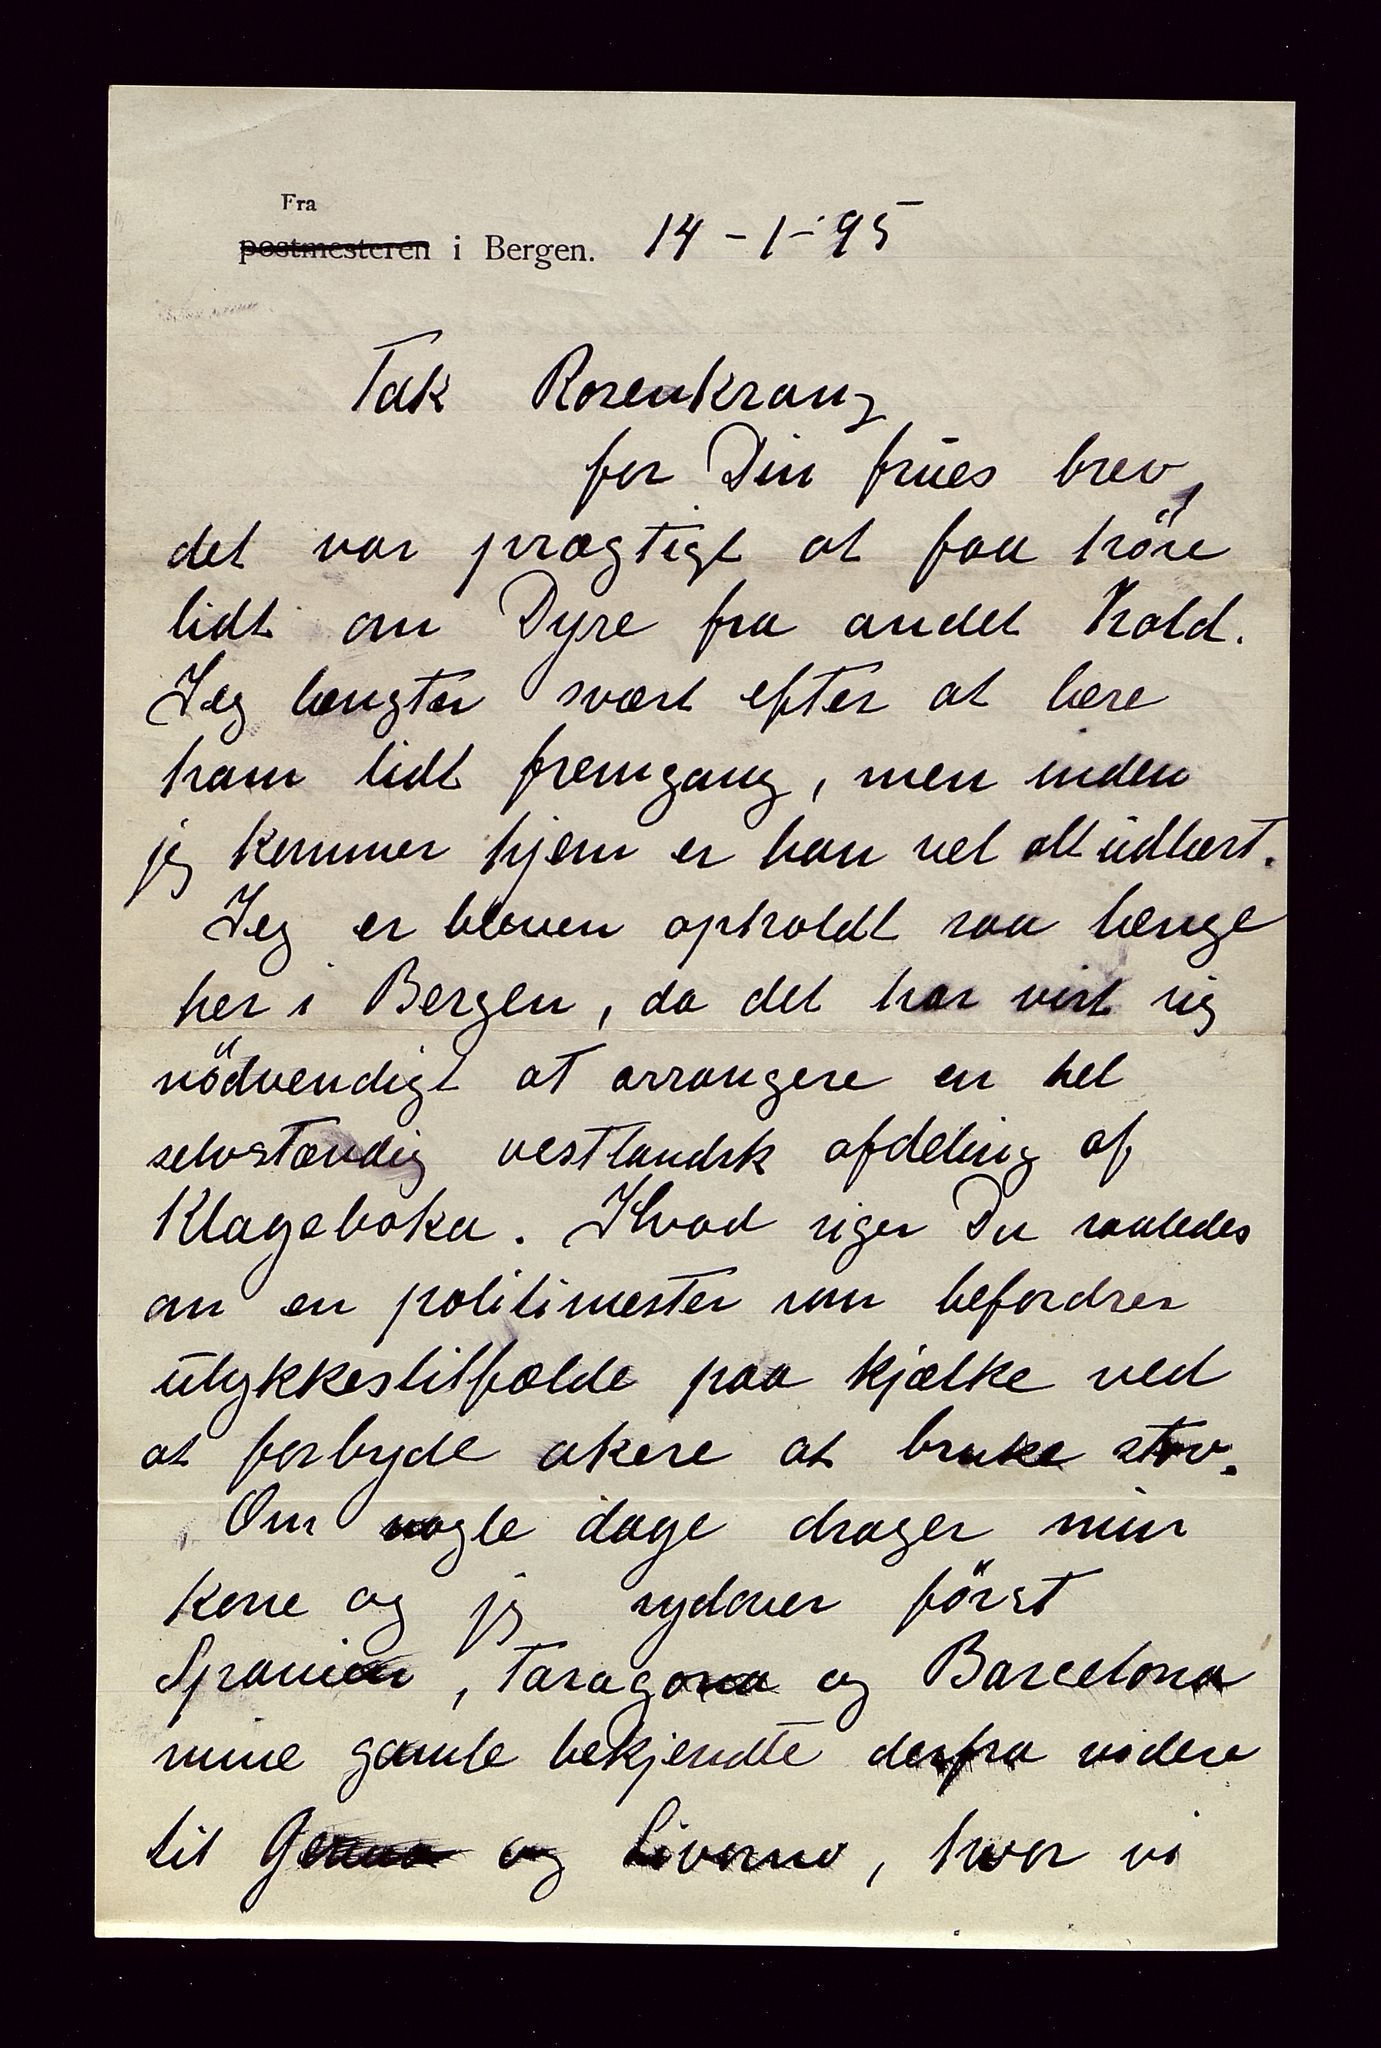 Fra
postmesteren i Bergen. 14-1-95
Tak Rosenkranz
for Din frues brev,
det var prægtigt at faa höre
lidt om Dyre fra andet hold.
Jeg længter svært efter at lære
ham lidt fremgang, men inden
jeg kommer hjem er han vel alt udlært.
Jeg er bleven opholdt saa længe
her i Bergen, da det har vist sig
nödvendigt at arrangere en hel
selvstændig vestlandsk afdeling af
Klageboka. Hvad siger Du saaledes
om en politimester som befordrer
ulykkestilfælde paa kjælke ved
at forbyde akere at bruke stav.
Om nogle dage drager min
kone og jeg sydover först
Spanien, Taragona og Barcelona
mine gamle bekjendte derfra videre
til Genua og Livorno, hvor vi